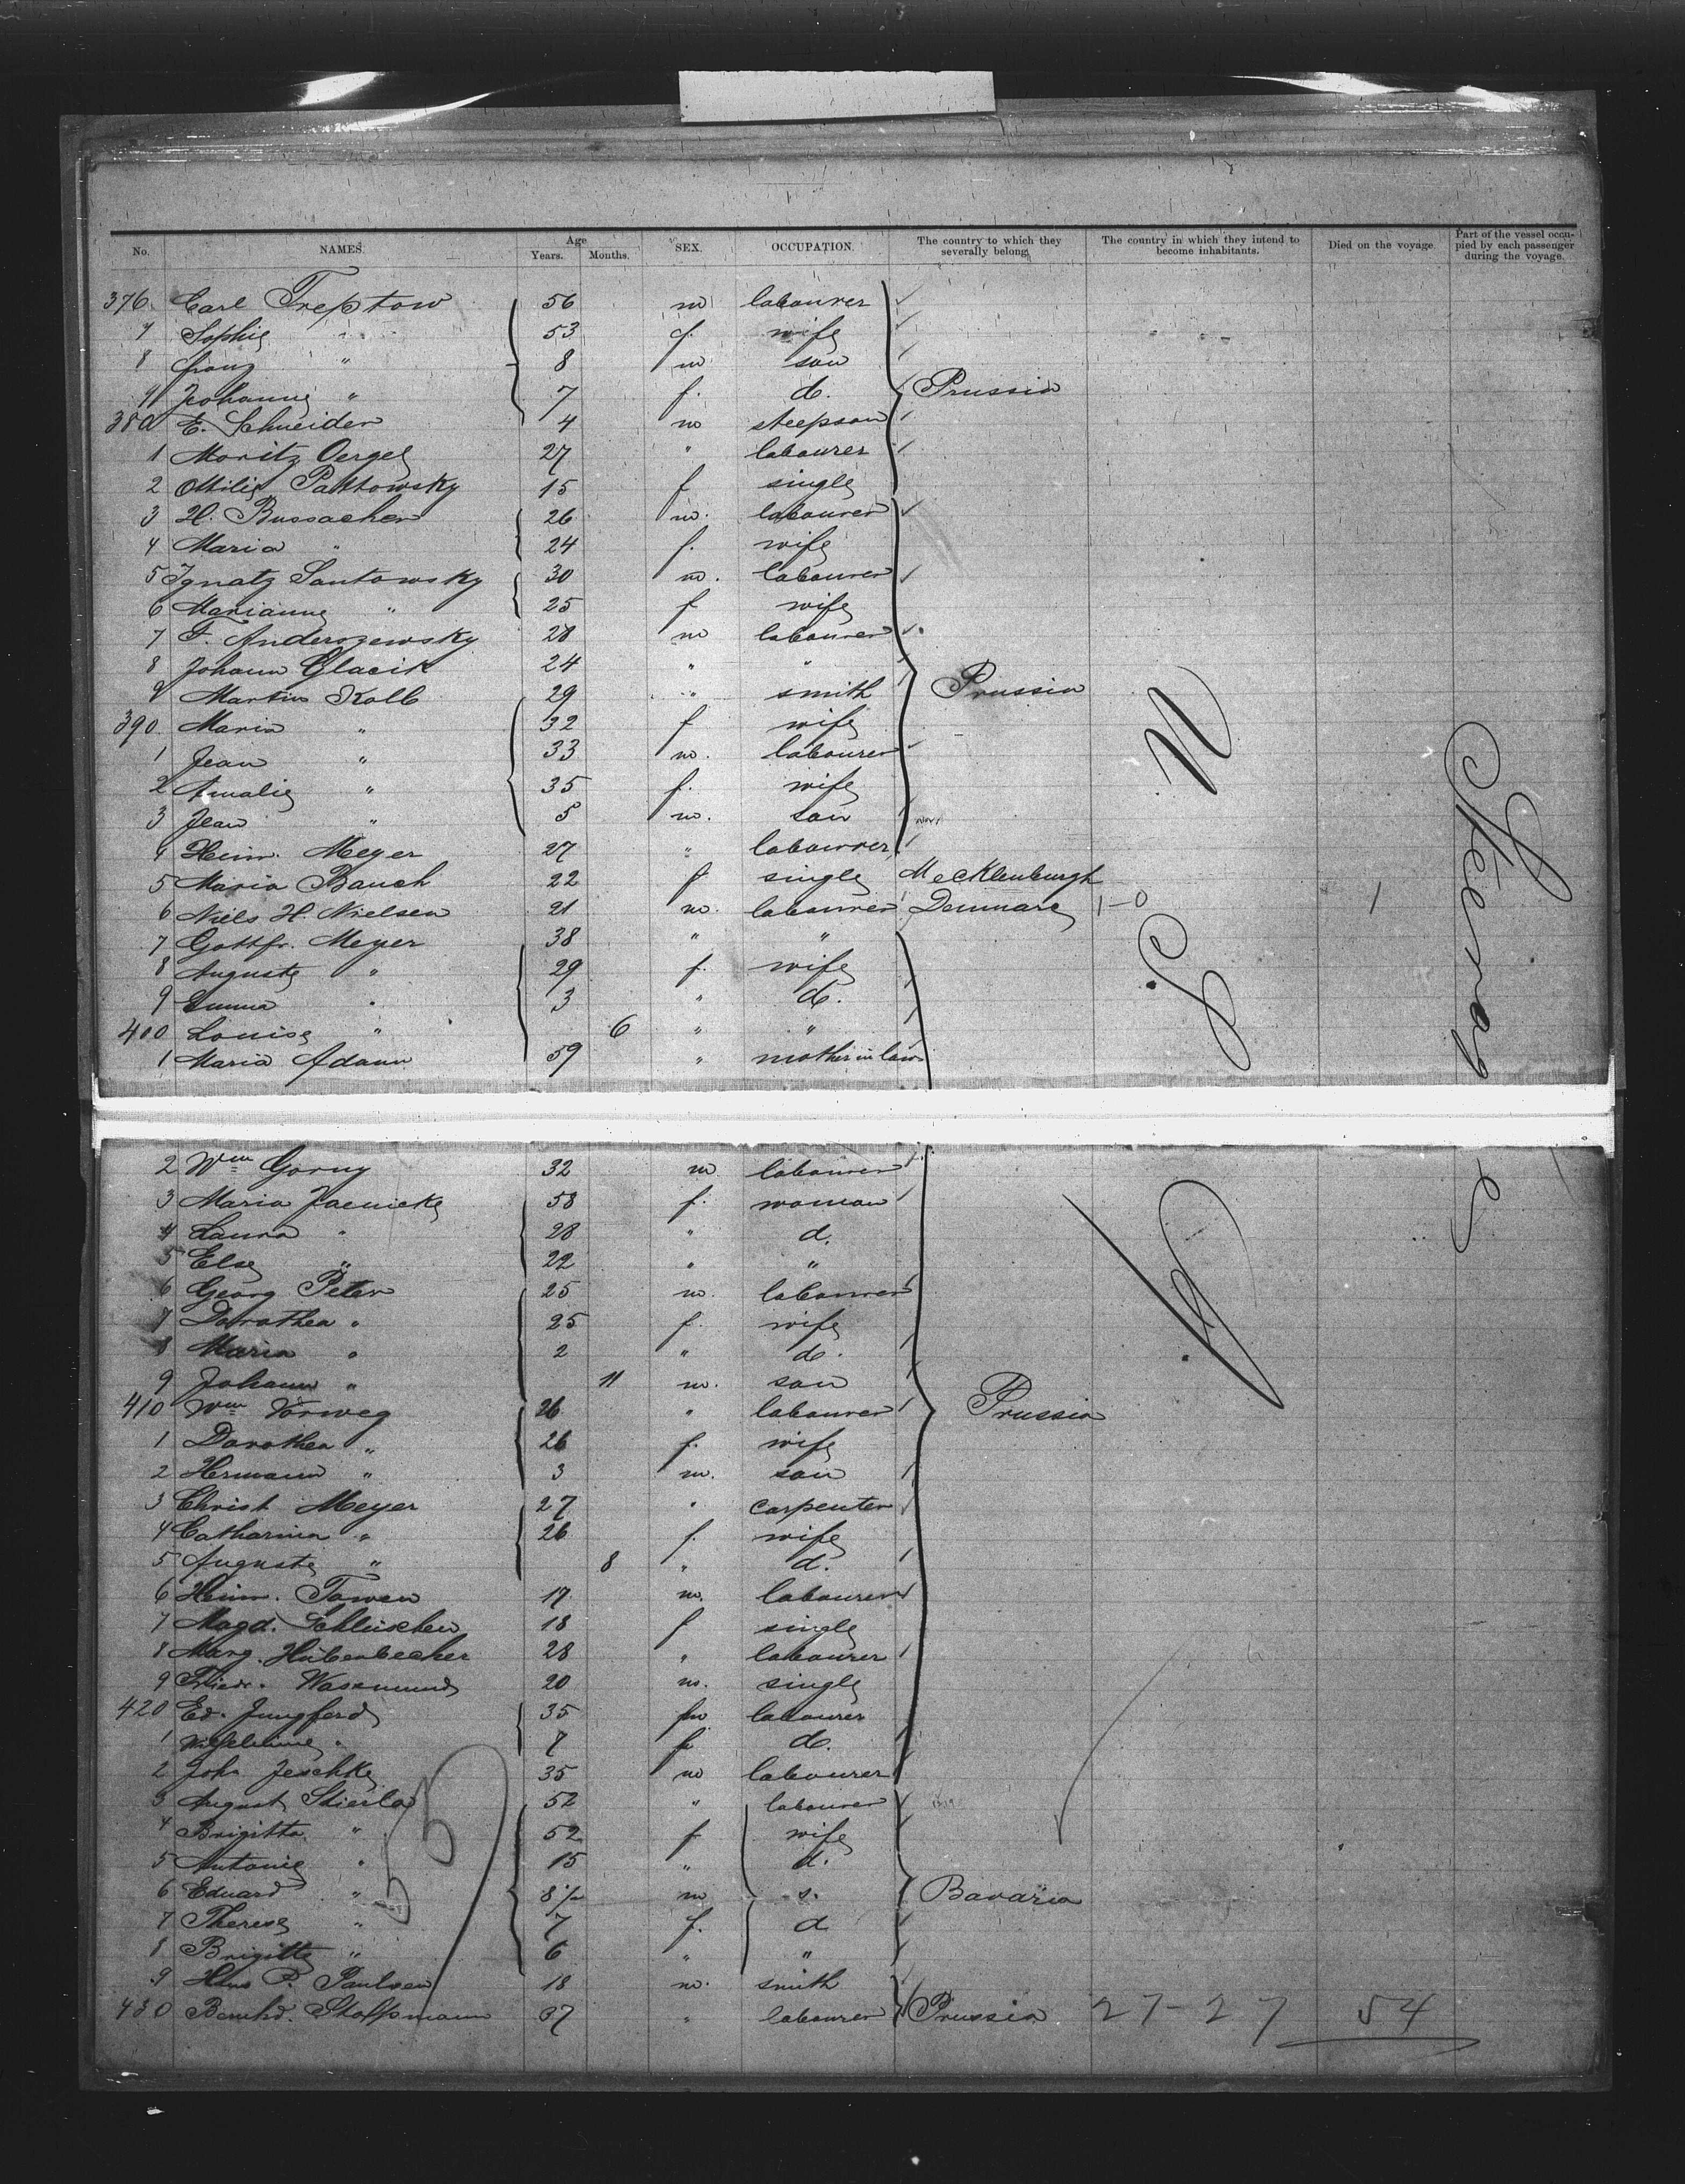 No. NAMES. Age Years. Months. SEX. OCCUPATION. The country to which they severally belong. The country in which they intend to become inhabitants. Died on the voyage. Part of the vessel occupied by each passenger during the voyage.
376. Carl Treptow 56 m labourer
7 Sophie " 53 f. wife
8 Franz " 8 m son
9 Johanne " 7 f. d. Prussia
380 E. Schneider 4 m steepson
1 Moritz Oergel 27 " labourer
2 Ottilie Pattowsky 15 f single
3 H. Bussacker 26 m. labourer
4 Maria " 24 f. wife
5 Ignatz Santowsky 30 m. labourer
6 Marianne " 25 f wife
7 F. Anderszewsky 28 m labourer
8 Johann Glacik 24 " "
9 Martin Kolb 29 " smith Prussia
390. Maria " 32 f wife
1 Jean " 33 m. labourer
2 Amalie " 35 f. wife
3 Jean " 5 m. son
4 Heinr. Meyer 27 " labourer
5 Maria Bauch 22 f single Mecklenburgh
6 Niels H. Nielsen 21 m. labourer Denmark 1-0 1
7 Gottfr. Meyer 38 " "
8 Auguste " 29 f. wife
9 Emma " 3 " d.
400 Louise " 6 " "
1 Maria Adam 59 " mother in law
U. S. A.
Steerage
2 Wm Gorny 32 m labourer
3 Maria Jaenicke 58 f. woman
4 Laura " 28 " d.
5 Else " 22 " "
6 Georg Peter 25 m. labourer
7 Dorothea " 25 f. wife
8 Maria " 2 " d.
9 Johann " 11 m. son
410 Wm Vorweg 26 " labourer Prussia
1 Dorothea " 26 f. wife
2 Hermann " 3 m. son
3 Christ Meyer 27 " carpenter
4 Catharina " 26 f. wife
5 Auguste " 8 " d.
6 Heinr. Tamen 17 m. labourer
7 Magd. Schleuschen 18 f single
8 Marg. Hubenbecher 28 " labourer
9 Friedr. Wassmund 20 m. single
420 Ed. Jungferd 35 m labourer
1 Wilhelmine " 7 f d.
2 Joh. Jeschke 35 m labourer
3 August Stierla 52 " labourer
4 Brigitta " 52 f wife
5 Antonie " 15 " d.
6 Eduard " 8½ m s. Bavaria
7 Therese " 7 f. d
8 Brigitte " 6 " "
9 Hans P. Paulsen 18 m. smith
430 Bernhd. Stoffsmann 37 " labourer Prussia 27-27 54